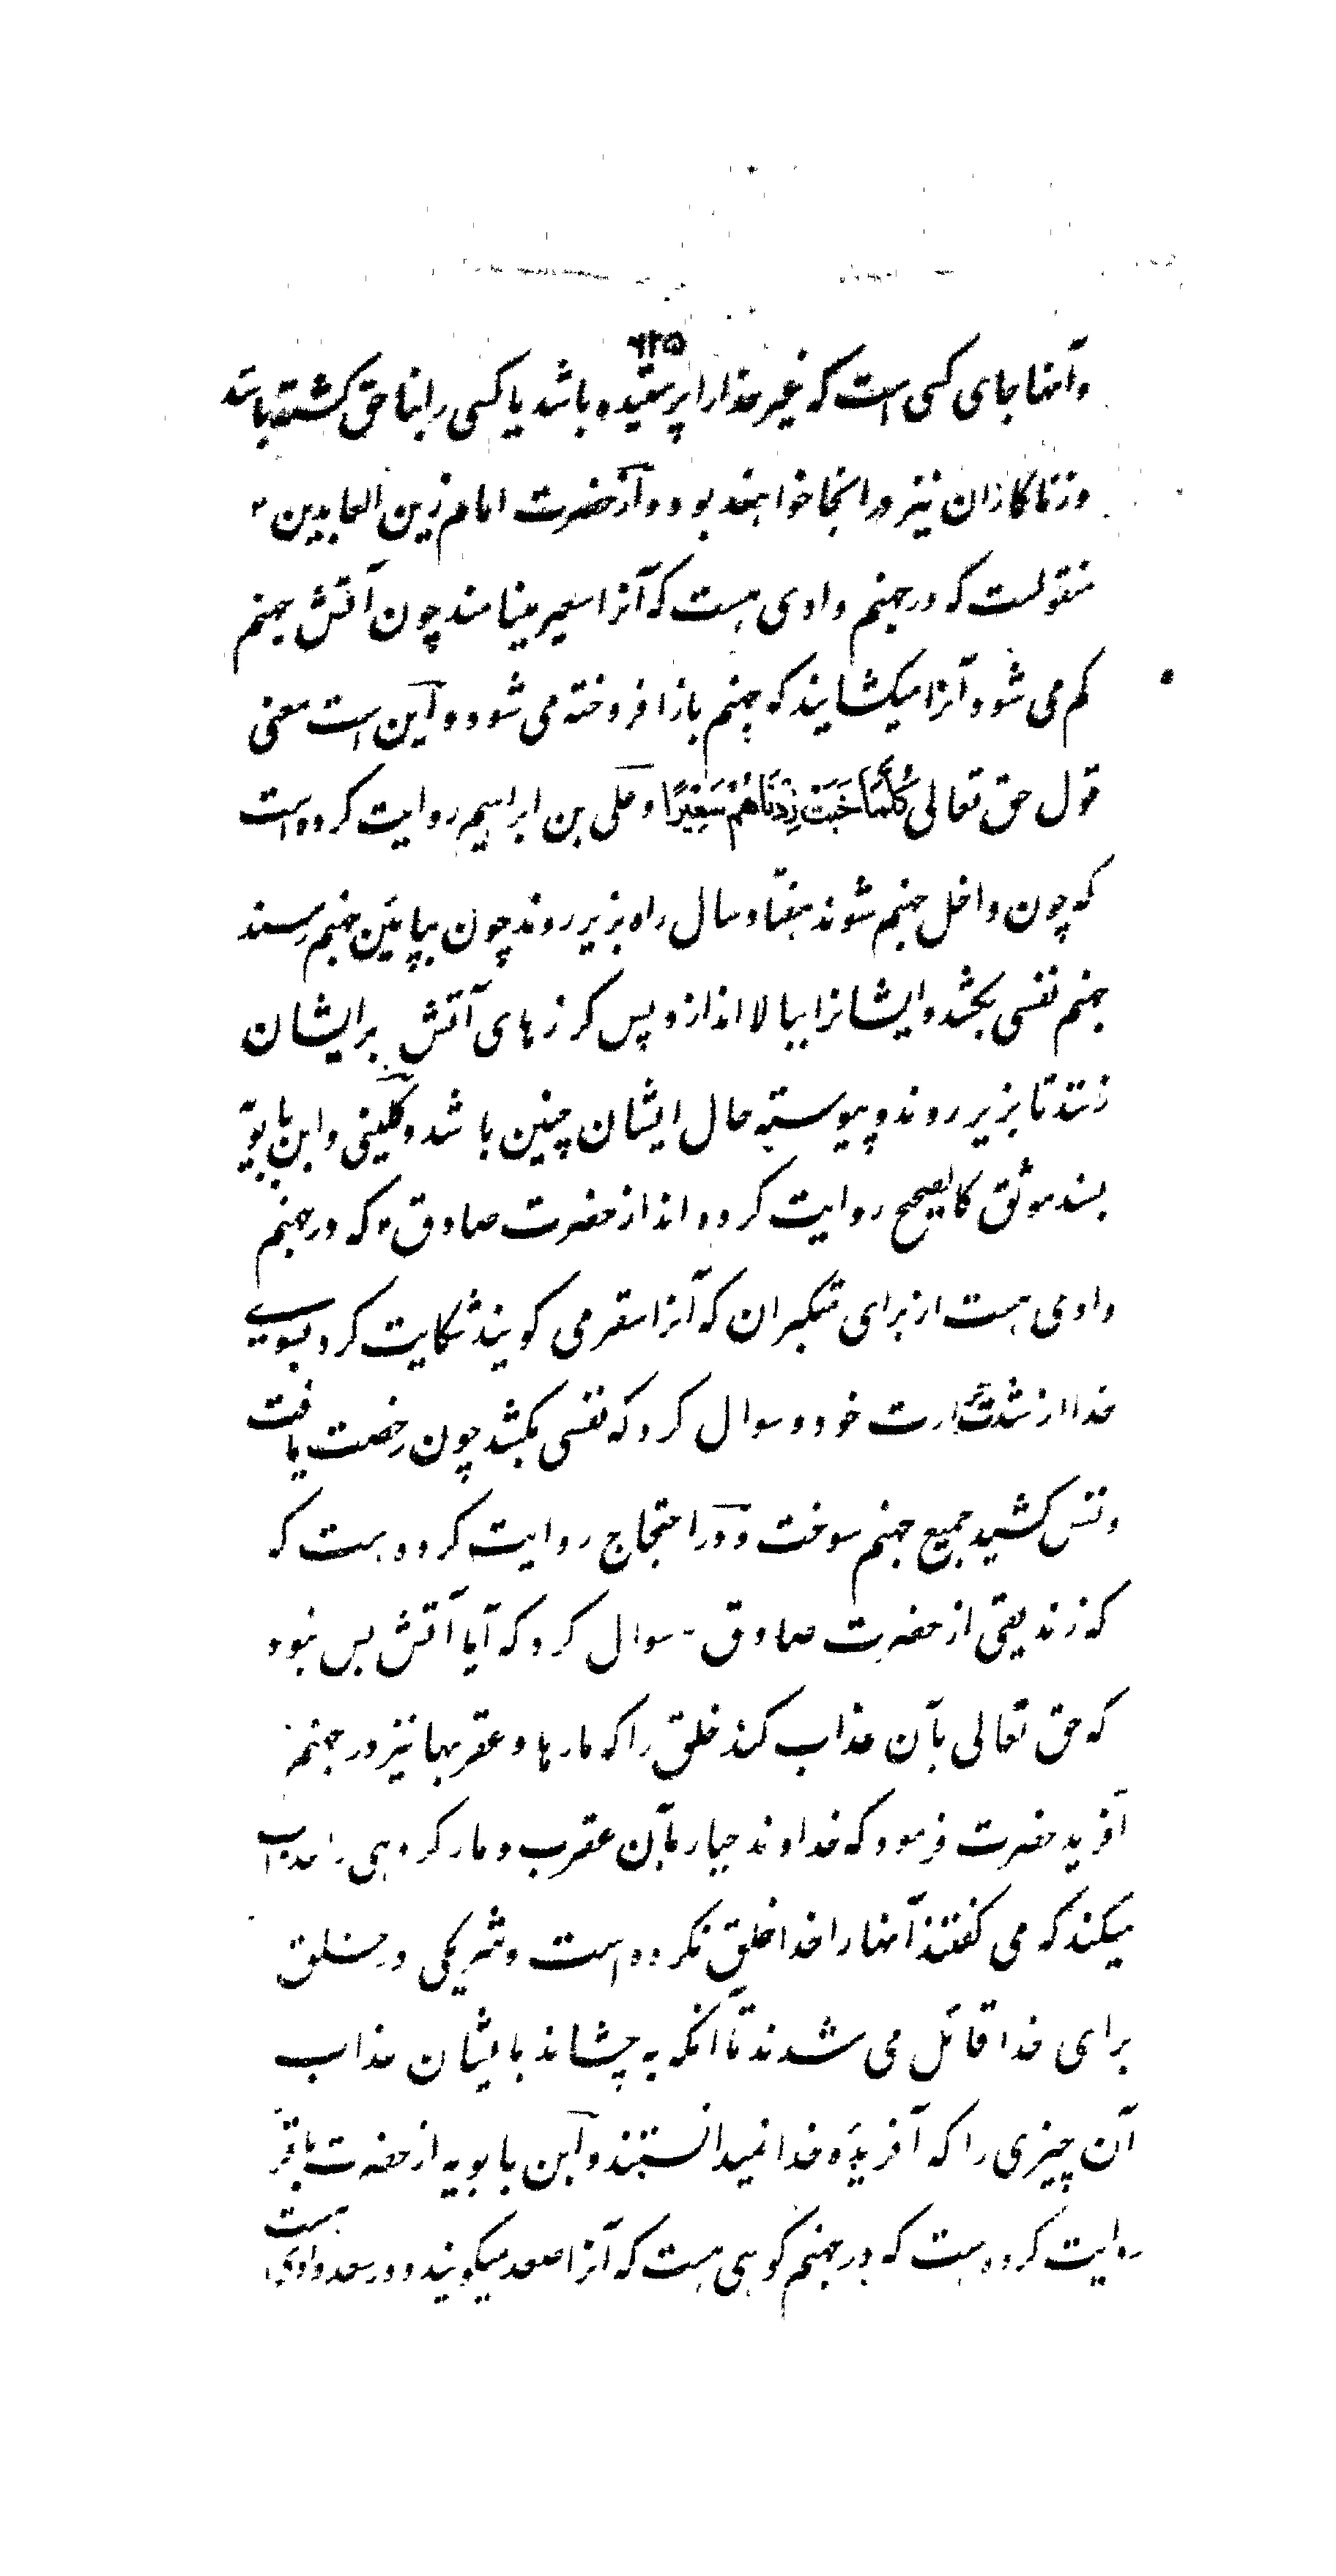 ۶۲۵
وآنها جای کسی است که غیر خدا را پرستیده باشد یا کسی را بناحق کشته باشد
و زناکاران نیز در انجا خواهند بود و از حضرت امام زین العابدین ؑ
منقولست که در جهنم وادی هست که آنرا سعیر مینامند چون آتش جهنم
کم می شود آنرا میکشایند که جهنم باز افروخته می شود و این است معنی
قول حق تعالی كُلَّمَا خَبَتْ زِدْنَاهُمْ سَعِيْرًا و علی بن ابراهیم روایت کرده است
که چون داخل جهنم شوند هفتاد سال راه بزیر روند چون بپائین جهنم رسند
جهنم نفسی بکشد و ایشانرا ببالا اندازد پس کرزهای آتش بر ایشان
زنند تا بزیر روند و پیوسته حال ایشان چنین باشد و کلینی و ابن بابویه
بسند موثق کالصحیح روایت کرده اند از حضرت صادق ؑ که در جهنم
وادی هست از برای متکبران که آنرا سقر می کویند شکایت کرد بسویے
خدا از شدت حرارت خود و سوال کرد که نفسی بکشد چون رخصت یافت
و نفس کشید جمیع جهنم سوخت و در احتجاج روایت کرده است که
که زندیقی از حضرت صادق ؑ سوال کرد که آیا آتش بس نبود
که حق تعالی بآن عذاب کند خلق را که مارها و عقربها نیز در جهنم
آفرید حضرت فرمود که خداوند جبار بآن عقرب و مار کروهی را عذاب
میکند که می کفتند آنها را خدا خلق نکرده است و شریکی در خلق
برای خدا قائل می شدند تا آنکه به چشاند بایشان عذاب
آن چیزی را که آفریدهٔ خدا نمیدانستند و ابن بابویه از حضرت باقر
روایت کرده است که در جهنم کوهی هست که آنرا صعد میکویند و در صعد وادی هست